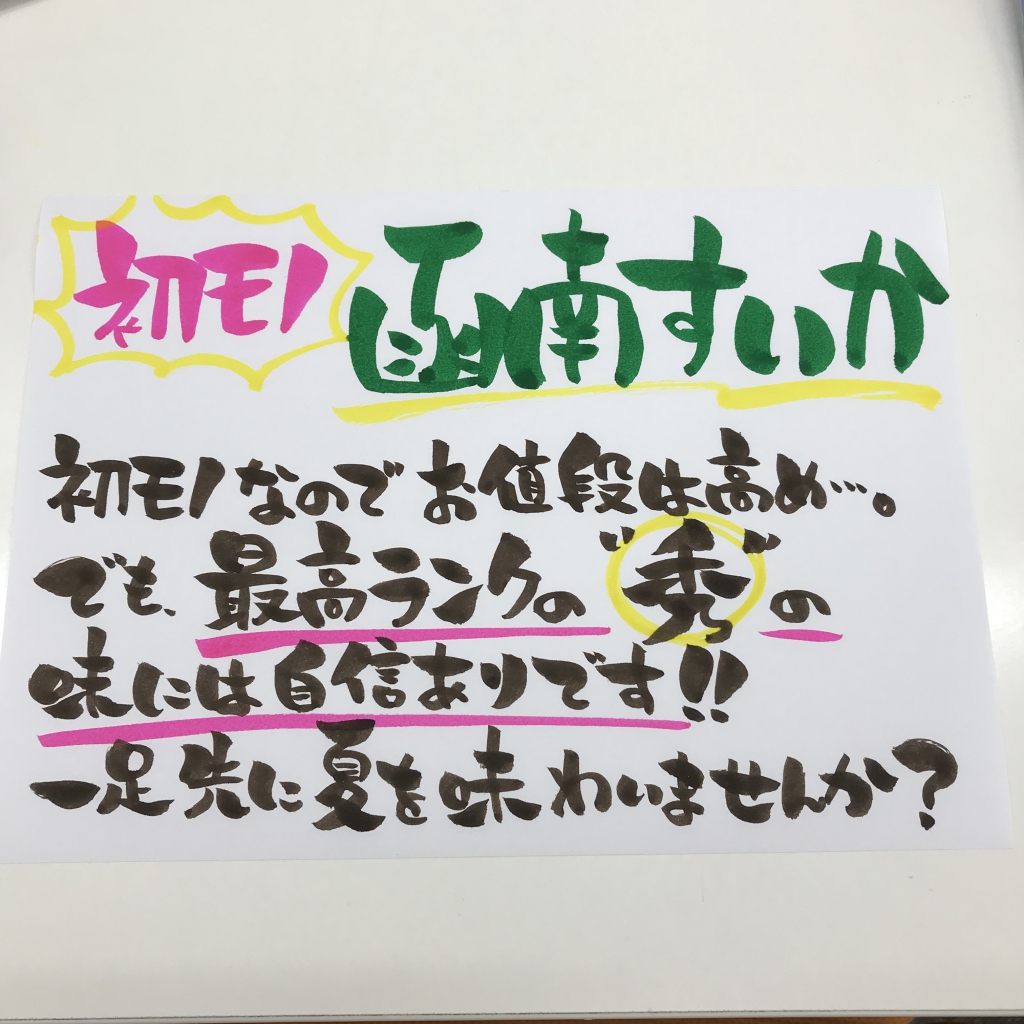 初モノ 函南すいか
初モノなのでお値段は高め…。
でも、最高ランクの"秀"の
味には自信ありです!!
一足先に夏を味わいませんか?